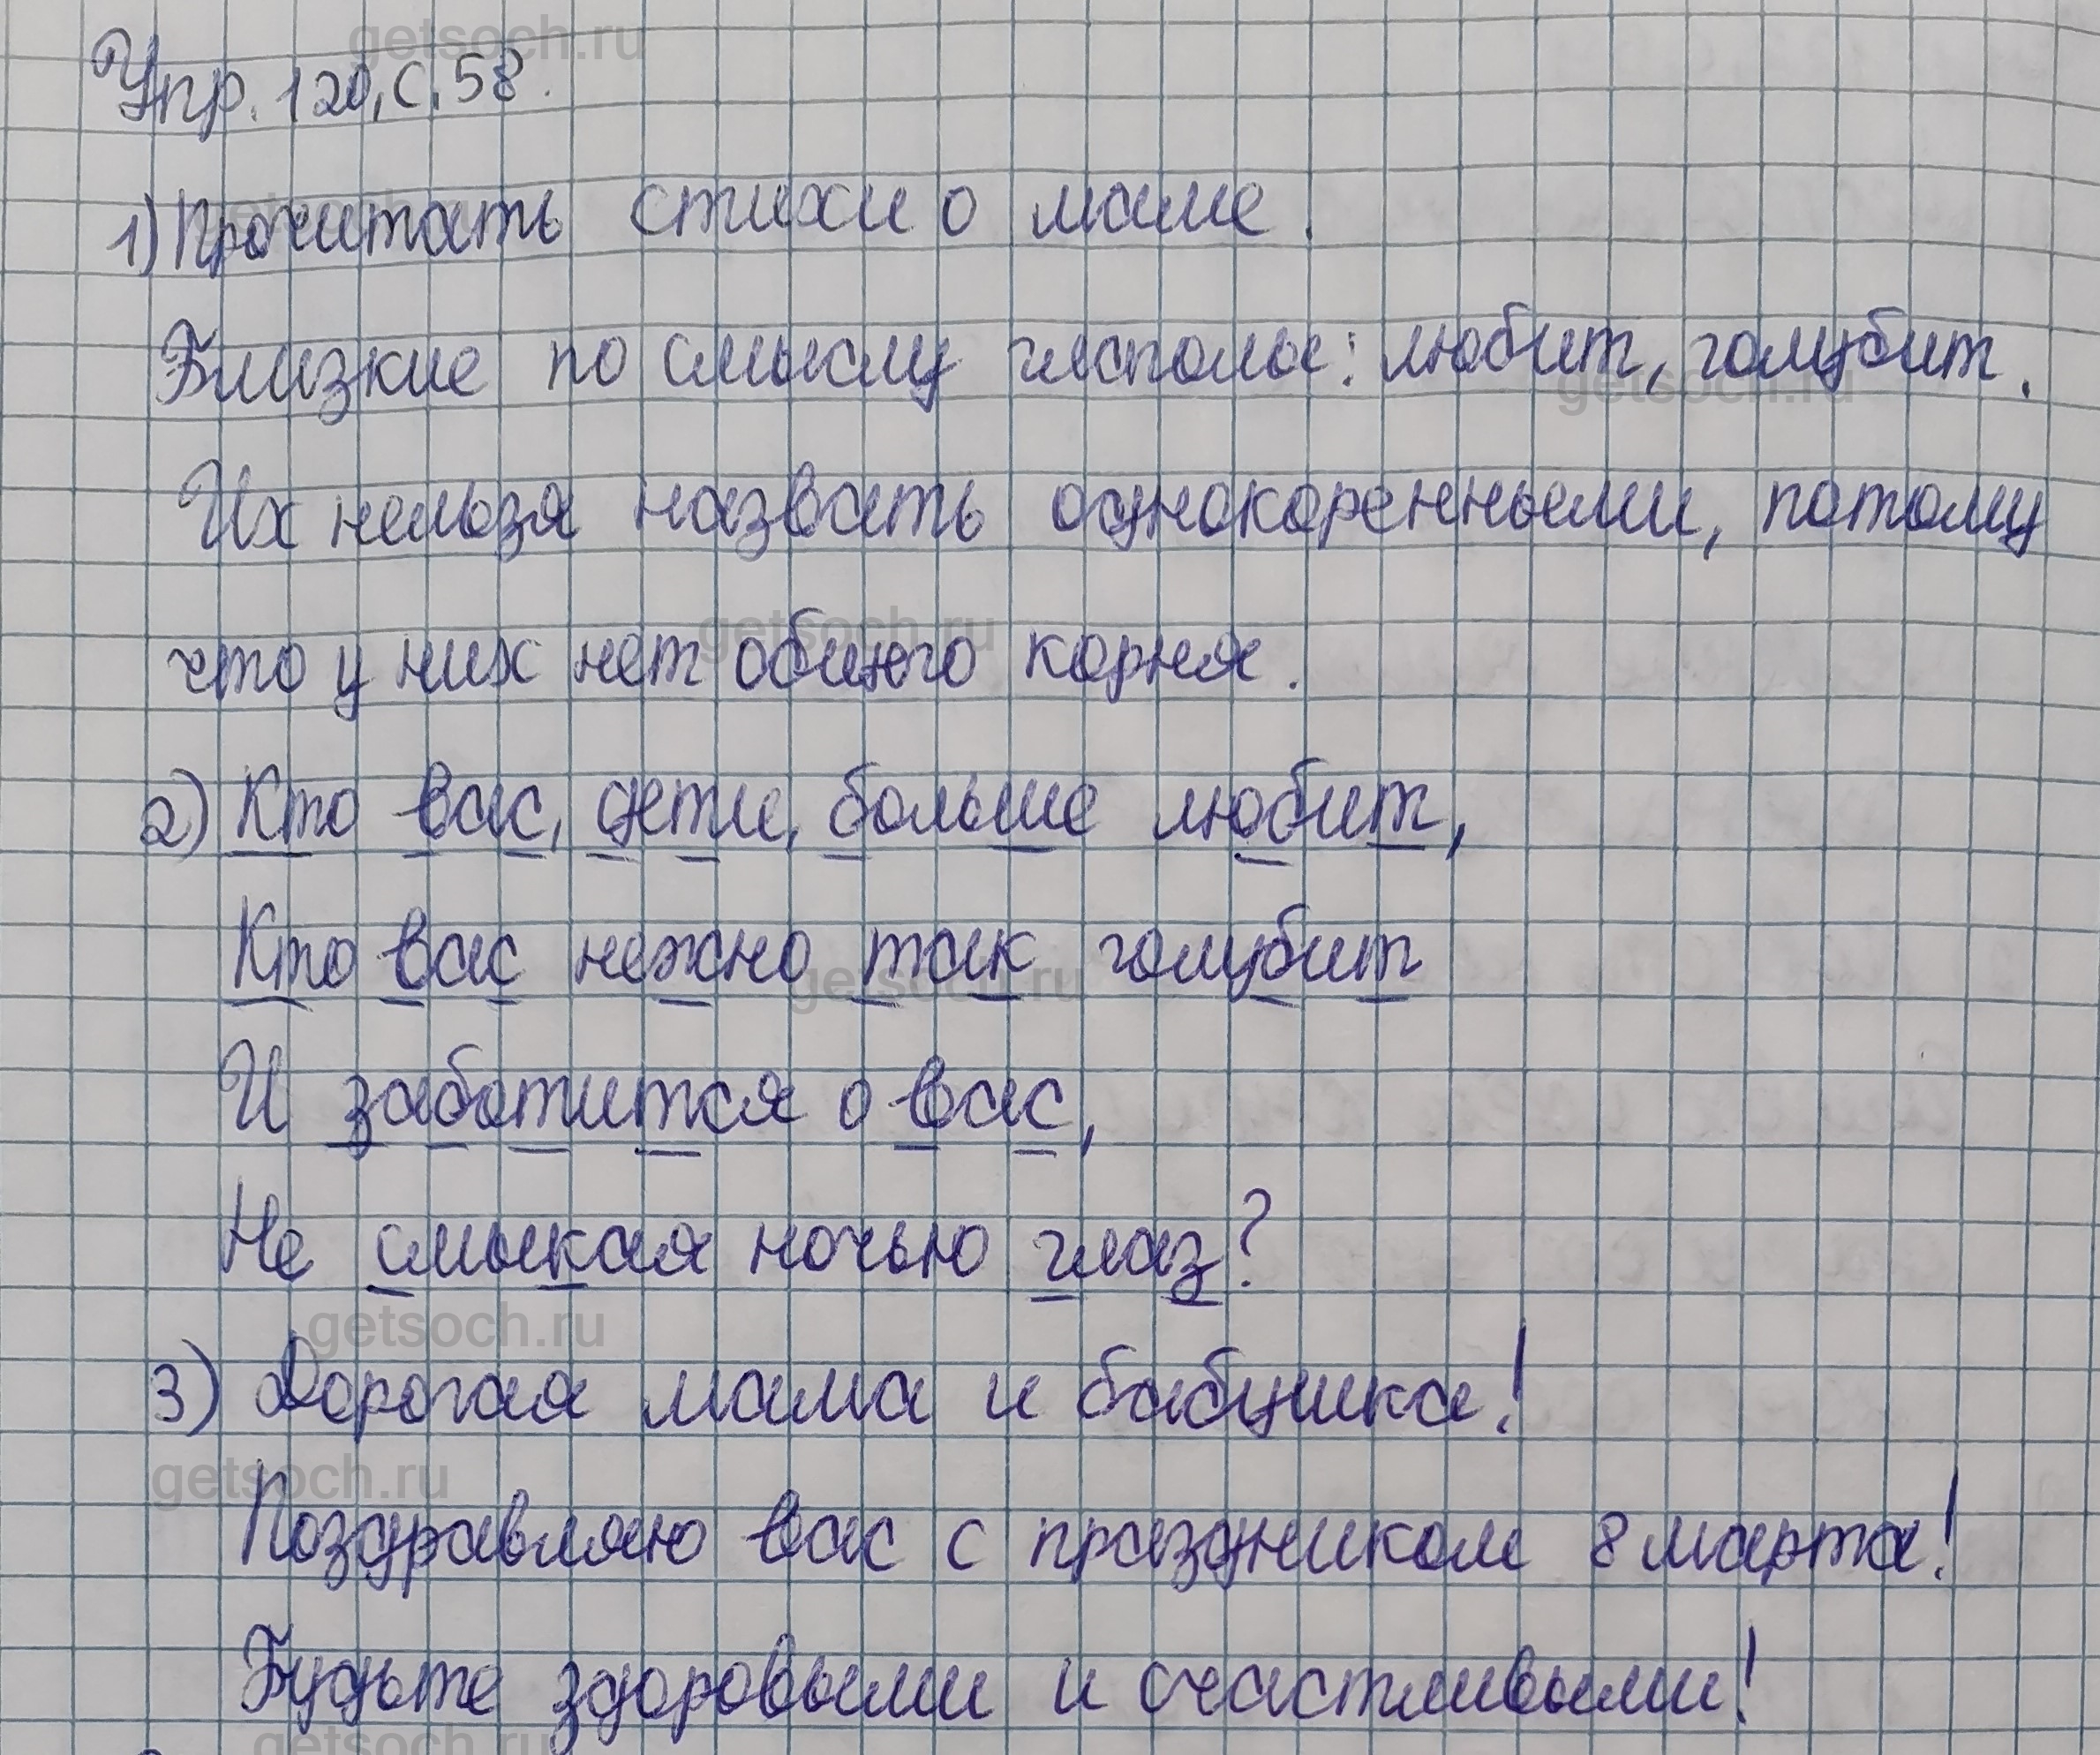 Упр. 120, с. 58.
1) Прочитать стихи о маме.
Близкие по смыслу глаголы: любит, голубит.
Их нельзя назвать однокоренными, потому
что у них нет общего корня.
2) Кто вас, дети, больше любит,
Кто вас нежно так голубит
И заботится о вас,
Не смыкая ночью глаз?
3) Дорогая мама и бабушка!
Поздравляю вас с праздником 8 марта!
Будьте здоровыми и счастливыми!
getsoch.ru
getsoch.ru
getsoch.ru
getsoch.ru
getsoch.ru
getsoch.ru
getsoch.ru
getsoch.ru